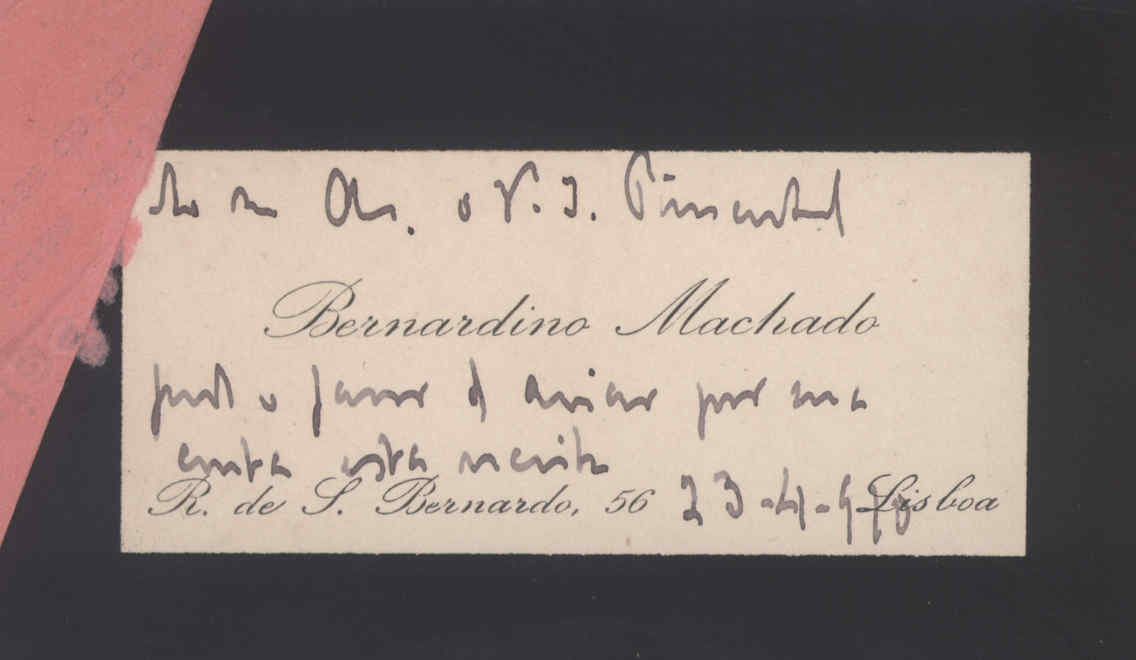 Ao seu Am. o V. J. Pimentel
Bernardino Machado
pede o favor d aviar por sua
conta esta receita
R. de S. Bernardo, 56
23-4-
Lisboa